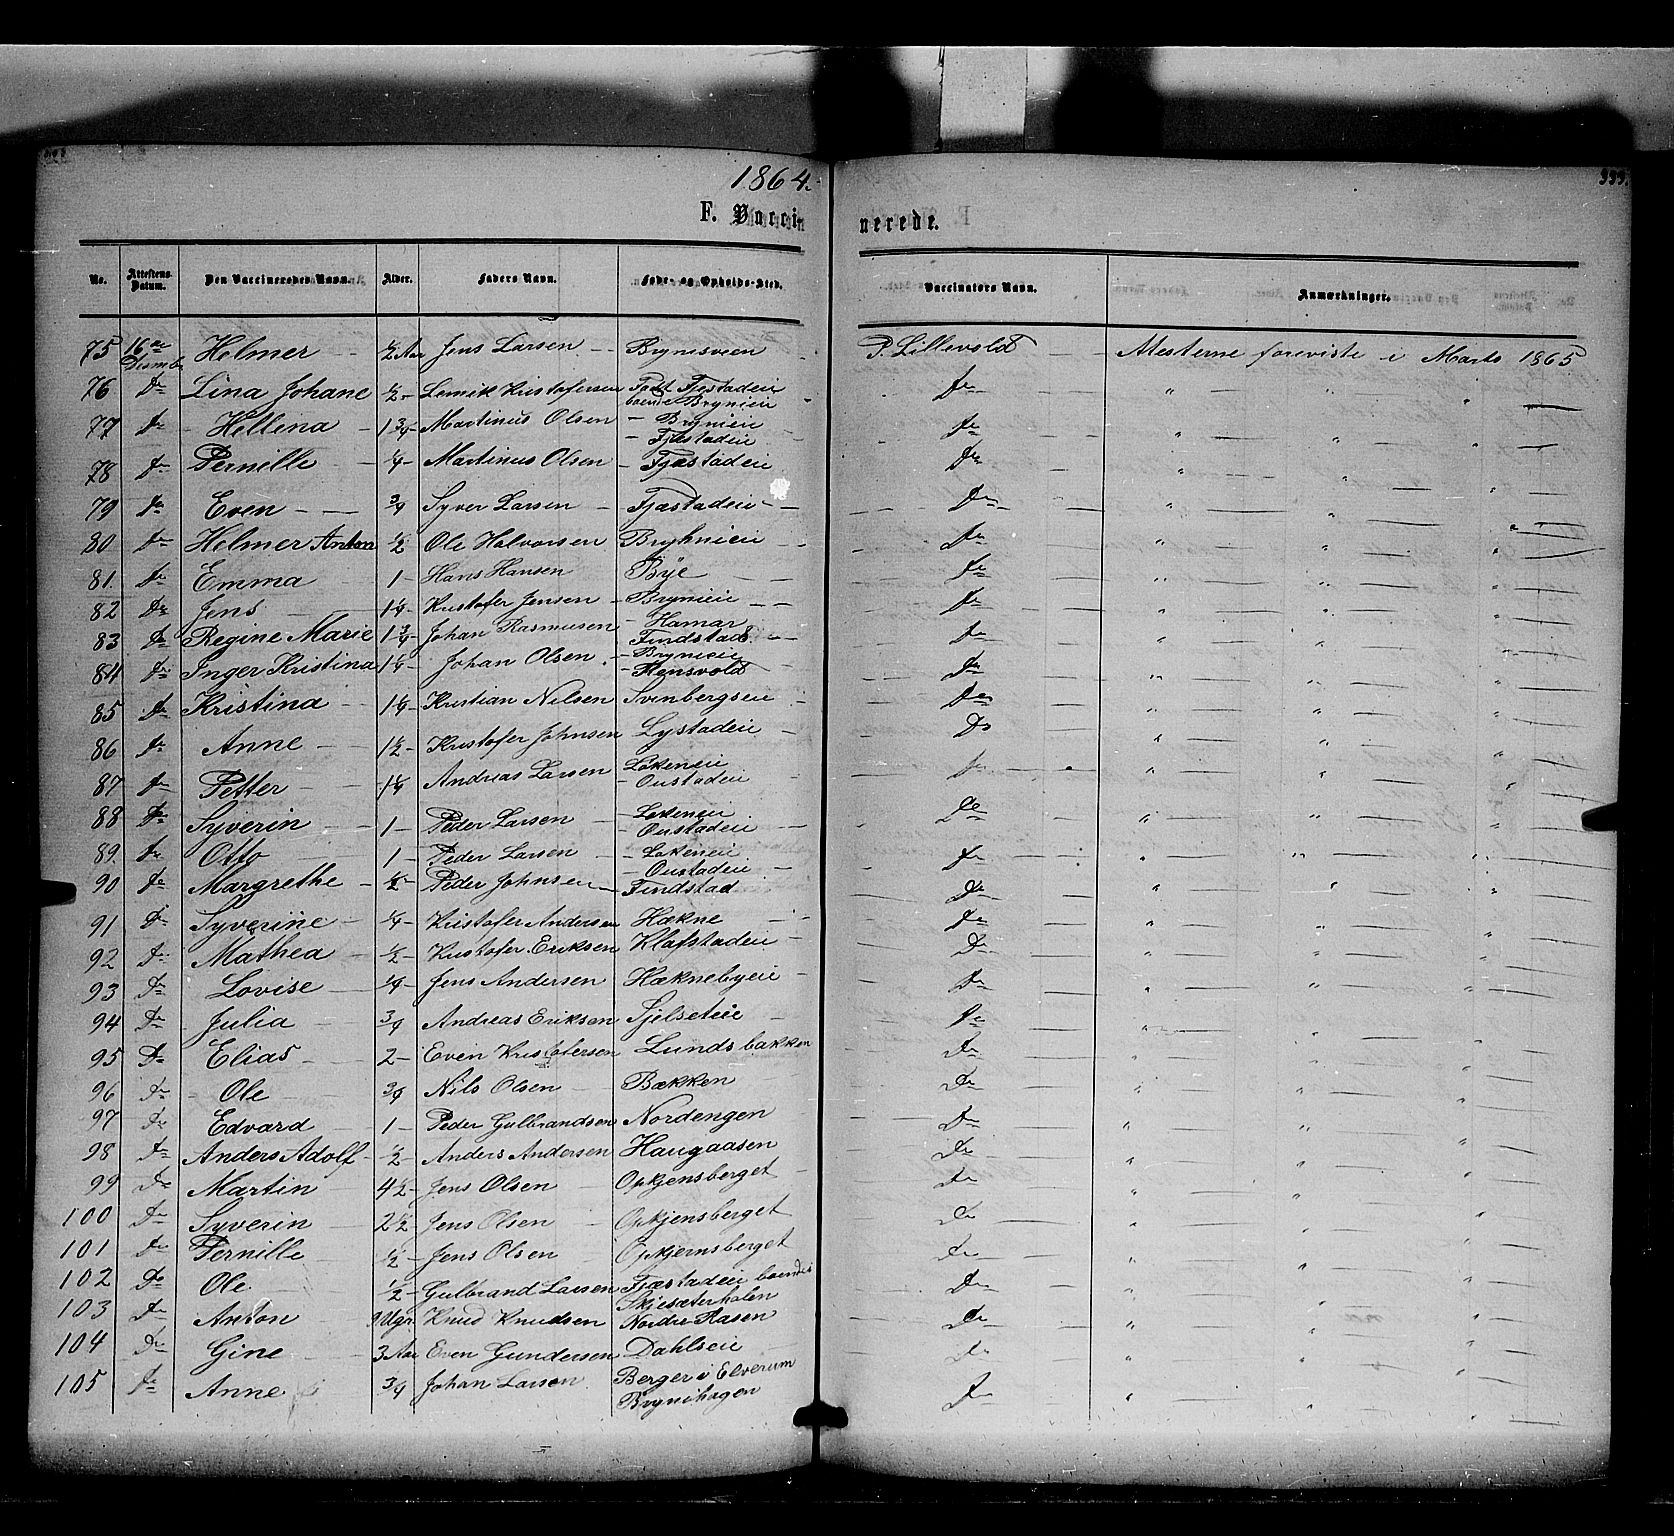 1864.
333.
F. Vaccinerede.
No. Attestens Datum. Den Vaccineredes Navn. Alder. Faders Navn. Føde- og Opholds-Sted. Vaccinators Navn. Anmærkninger.
75 16de Desmbr Helmer ½ Aar Jens Larsen Brynesveen P. Lillevold Atesterne foreviste i Marts 1865
76 Do Lina Johane ½ Lemik Kristofersen Født Fjestadeie boende Brynieie Do " "
77 Do Hellena 1¾ Martinus Olsen Brynieie Fjæstadeie Do " " "
78 Do Pernille ¼ Martinus Olsen Fjæstadeie Do " " "
79 Do Even ¾ Syver Larsen Fjæstadeie Do " " "
80 Do Helmer Anton ½ Ole Halvorsen Bryhnieie Do " " "
81. Do Emma 1 Hans Hansen Bÿe Do " " "
82 Do Jens 1¼ Kristofer Jensen Brynieie Do " " "
83 Do Regine Marie 1¾ Johan Rasmusen Hamar Findstad Do " " "
84 Do Inger Kristina 1¼ Johan Olsen Brynieie Stensvold Do " " "
85 Do Kristina 1¼ Kristian Nilsen Svinbergseie Do " " "
86 Do Anne 1½ Kristofer Johnsen Lystadeie Do " " "
87 Do Petter 1¼ Andreas Larsen Løkeneie Oustadeie Do " " "
88 Do Syverin 1 Peder Larsen Løkeneie Oustadeie Do " " "
89. Do Otto 1 Peder Larsen Løkeneie Oustadeie Do " " "
90 Do Margrethe ½ Peder Johnsen Findstad Do " " "
91 Do Syverine ¼ Kristofer Andersen Hækne Do " " "
92 Do Mathea ½ Kristofer Eriksen Klafstadeie Do " " "
93 Do Lovise ¼ Jens Andersen Hæknebyeie Do " " "
94 Do Julia ¾ Andreas Eriksen Sjelseteie Do " " "
95 Do Elias 2 Even Kristofersen Lundsbakken Do " " "
96 Do Ole ¾ Nils Olsen Bækken Do " " "
97 Do Edvard 1 Peder Gulbrandsen Nordengen Do " " "
98 Do Anders Adolf ½ Anders Andersen Haugaasen Do " " "
99 Do Martin 4½ Jens Olsen Opkjensberget Do " " "
100 Do Syverin 2½ Jens Olsen Opkjensberget Do " " "
101 Do Pernille ½ Jens Olsen Opkjernsberget Do " " "
102 Do Ole ½ Gulbrand Larsen Fjæstadeie boende Skjesæterhalen Do " " "
103 Do Anton 9 Ugr Knud Knudsen Nordre Aasen Do " " "
104 Do Gine 3 Aar Even Gundersen Dahlseie Do " " "
105 Do Anne ¾ Johan Larsen Berger i Elverum Brynihagen Do " " "